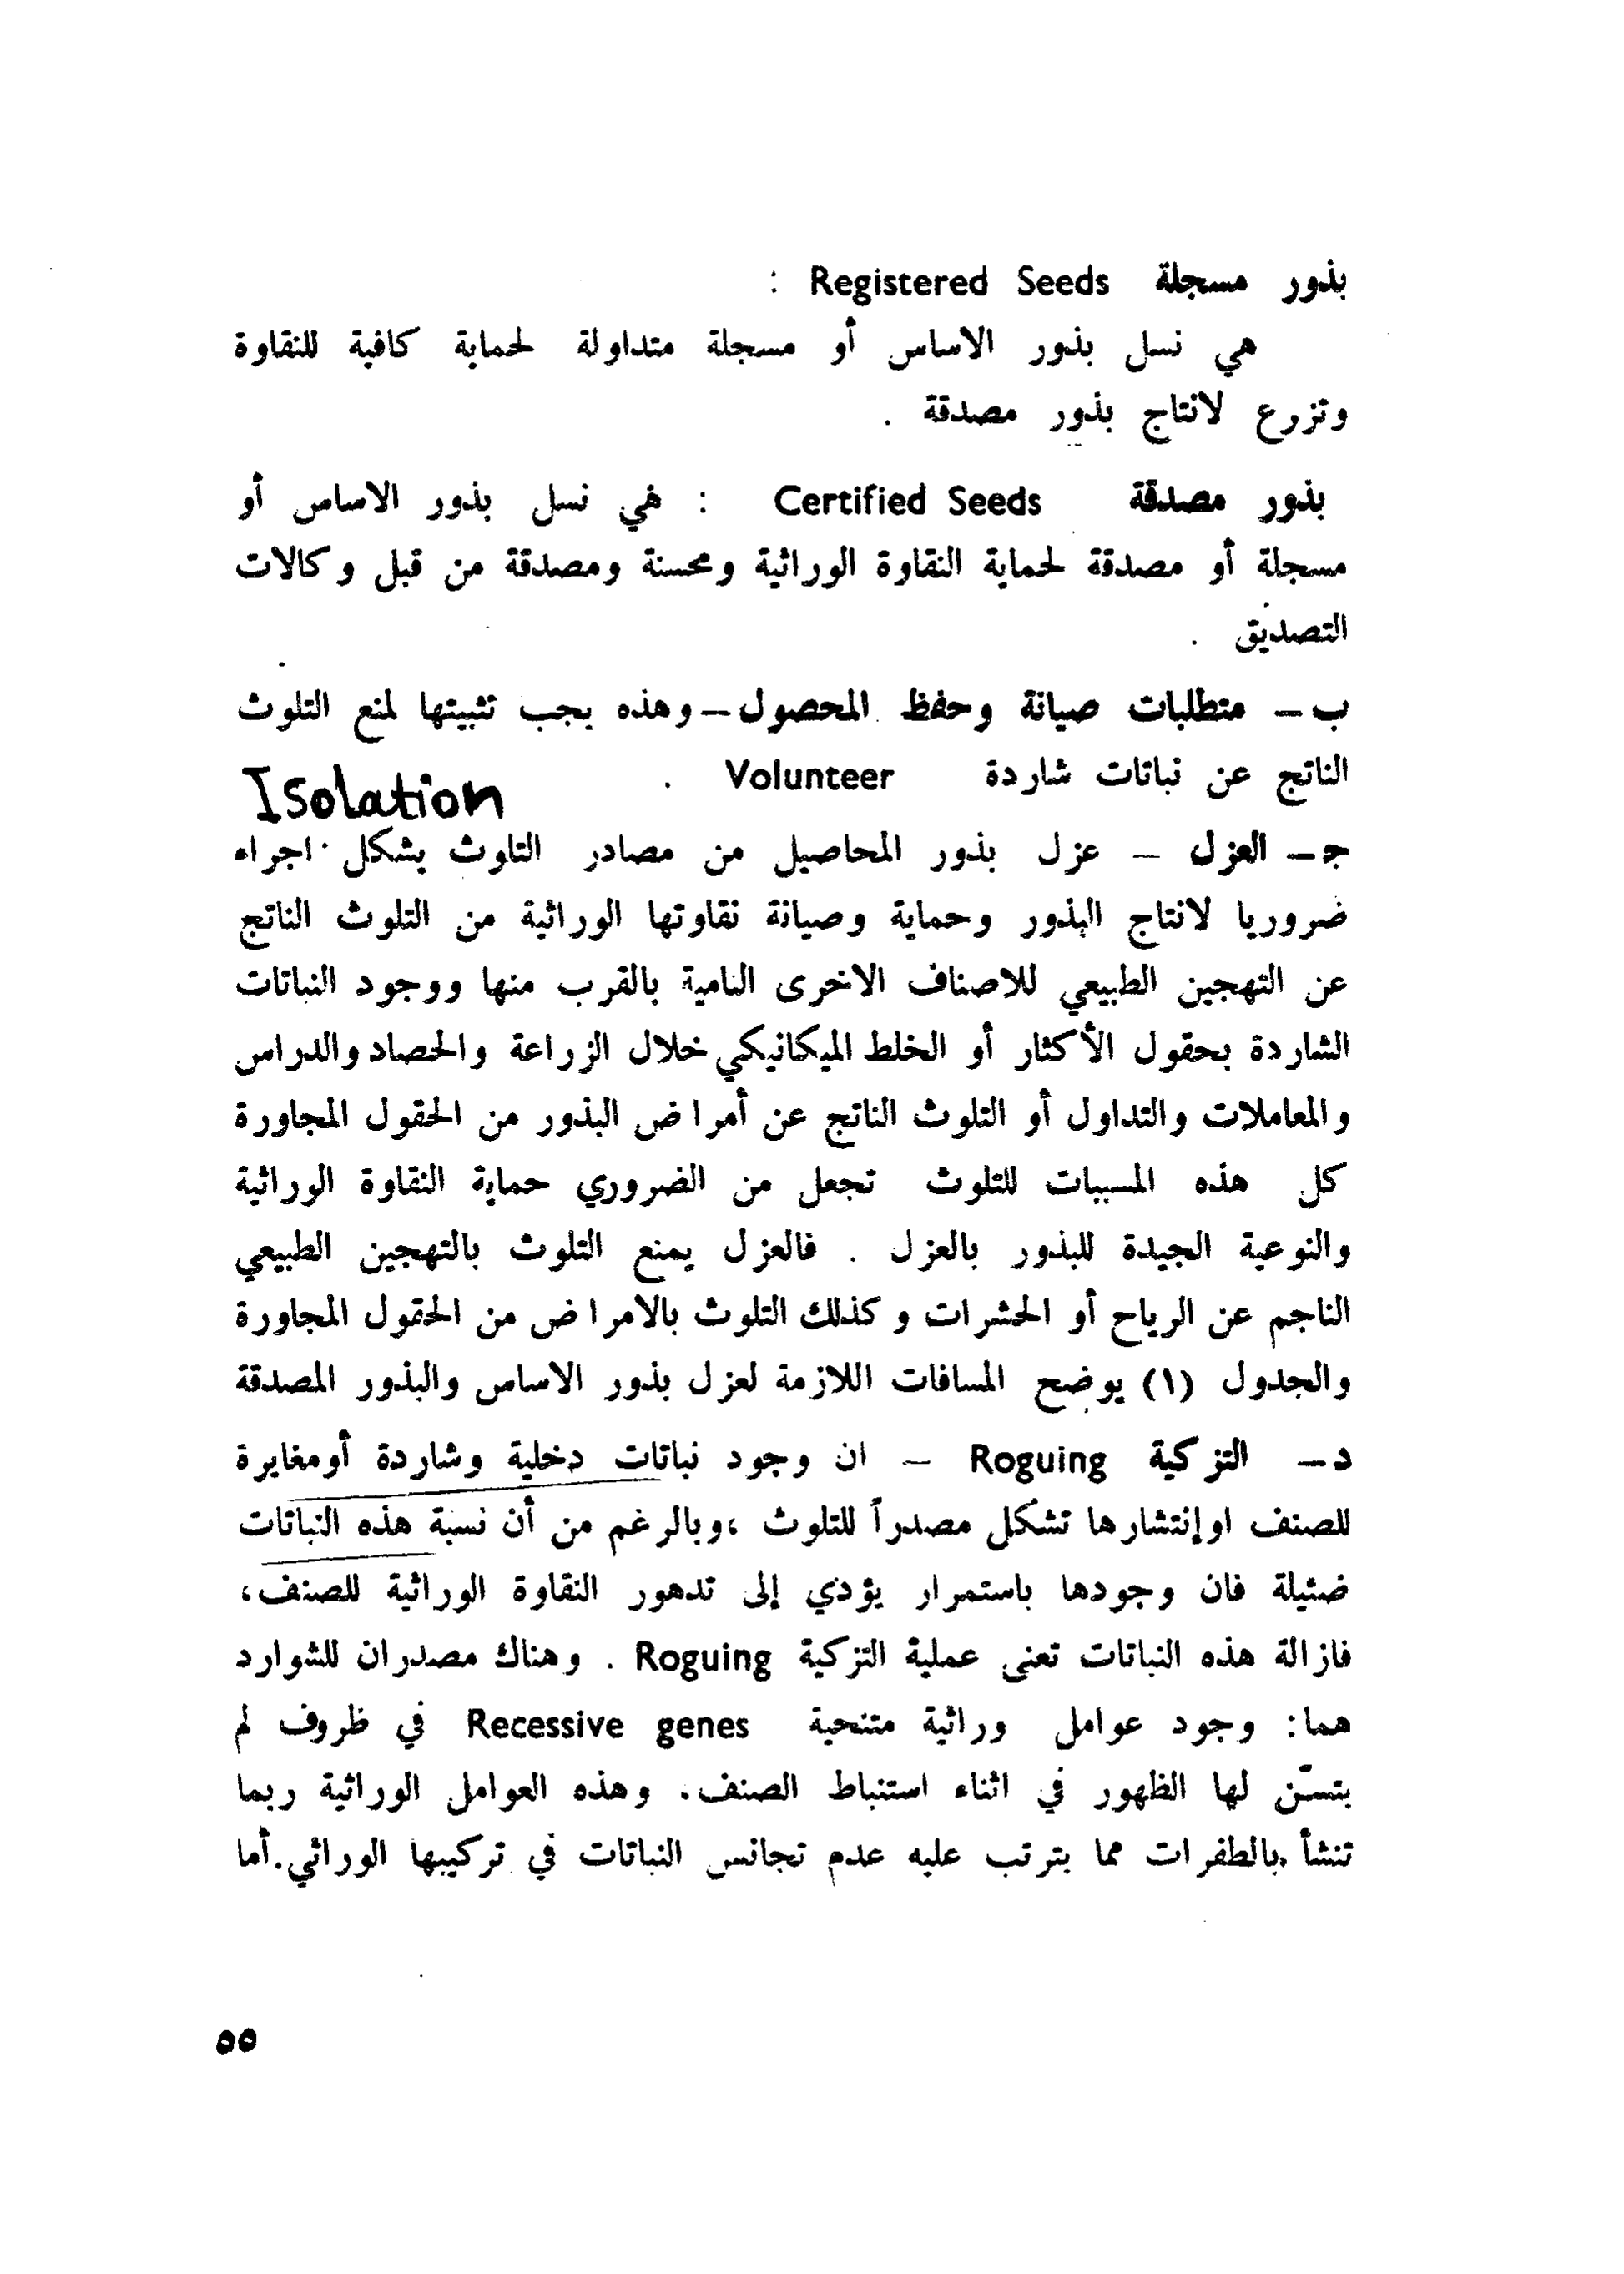 بذور مسجلة Registered Seeds :
هي نسل بذور الاساس أو مسجلة متداولة لحماية كافية للنقاوة
وتزرع لانتاج بذور مصدقة .
بذور مصدقة Certified Seeds : هي نسل بذور الاساس أو
مسجلة أو مصدقة لحماية النقاوة الوراثية ومحسنة ومصدقة من قبل وكالات
التصديق .
ب – متطلبات صيانة وحفظ المحصول – وهذه يجب تثبيتها لمنع التلوث
الناتج عن نباتات شاردة Volunteer .
Isolation
جـ – العزل – عزل بذور المحاصيل من مصادر التلوث يشكل اجراء
ضروريا لانتاج البذور وحماية وصيانة نقاوتها الوراثية من التلوث الناتج
عن التهجين الطبيعي للاصناف الاخرى النامية بالقرب منها ووجود النباتات
الشاردة بحقول الأكثار أو الخلط الميكانيكي خلال الزراعة والحصاد والدراس
والمعاملات والتداول أو التلوث الناتج عن أمراض البذور من الحقول المجاورة
كل هذه المسببات للتلوث تجعل من الضروري حماية النقاوة الوراثية
والنوعية الجيدة للبذور بالعزل . فالعزل يمنع التلوث بالتهجين الطبيعي
الناجم عن الرياح أو الحشرات وكذلك التلوث بالامراض من الحقول المجاورة
والجدول (١) يوضح المسافات اللازمة لعزل بذور الاساس والبذور المصدقة
د – التزكية Roguing – ان وجود نباتات دخلية وشاردة أومغايرة
للصنف اوإنتشارها تشكل مصدراً للتلوث ،وبالرغم من أن نسبة هذه النباتات
ضئيلة فان وجودها باستمرار يؤدي إلى تدهور النقاوة الوراثية للصنف،
فازالة هذه النباتات تعني عملية التزكية Roguing . وهناك مصدران للشوارد
هما: وجود عوامل وراثية متنحية Recessive genes في ظروف لم
يتسّن لها الظهور في اثناء استنباط الصنف. وهذه العوامل الوراثية ربما
تنشأ بالطفرات مما يترتب عليه عدم تجانس النباتات في تركيبها الوراثي.أما
٥٥